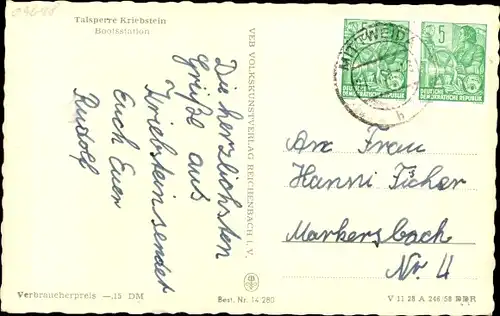 Talsperre Kriebstein
Bootsstation
Die herzlichsten
Grüße aus
Kriebstein sendet
Euch Euer
Rudolf
VEB VOLKSKUNSTVERLAG REICHENBACH i. V.
MITTWEIDA
b
5
DEUTSCHE
DEMOKRATISCHE REPUBLIK
DEUTSCHE
DEMOKRATISCHE REPUBLIK
An Frau
Hanni Fischer
Markersbach
Nr. 4
Verbraucherpreis —,15 DM
Best. Nr. 14 280
V 11 28 A 246/58 DDR